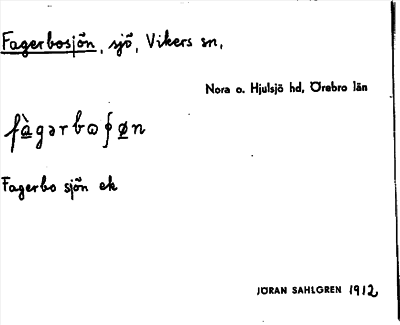 Fagerbosjön, sjö, Vikers sn,
Nora o. Hjulsjö hd, Örebro län
fàgərbɷʃøn
Fagerbo sjön ek
JÖRAN SAHLGREN 1912